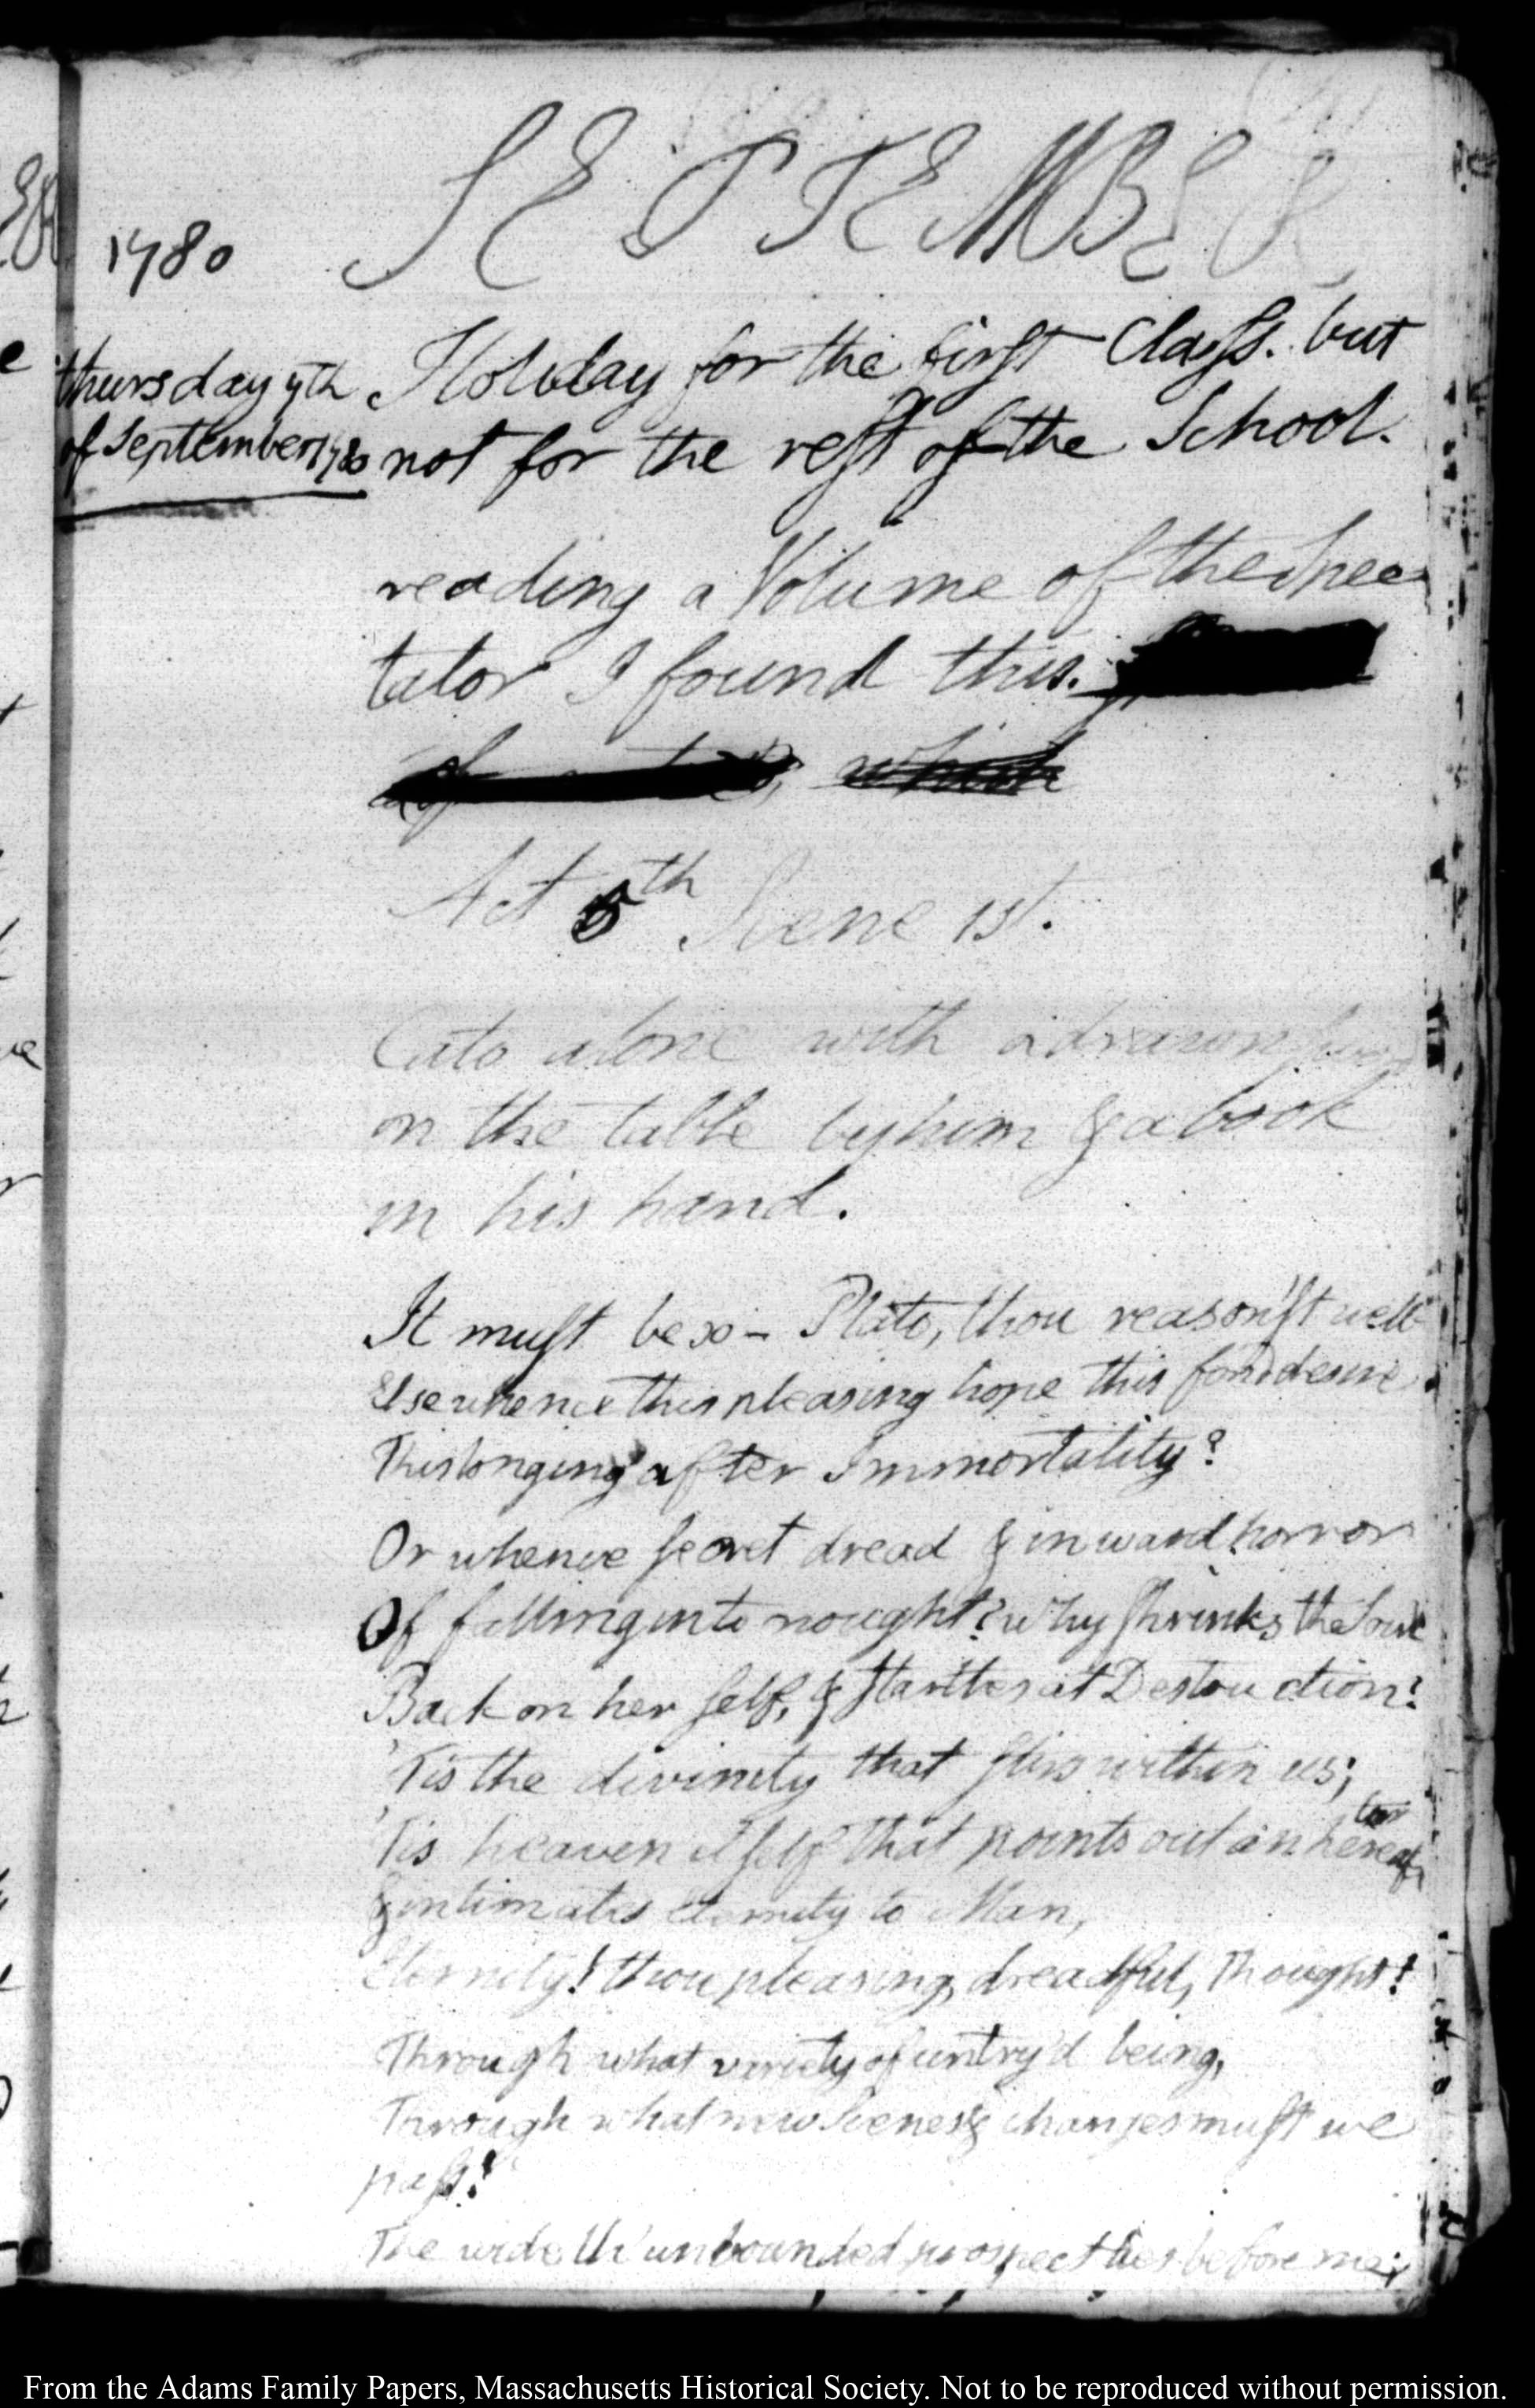 SEPTEMBER
1780
thursday 7th
of September 1780
Holiday for the first Class. but
not for the rest of the School.
reading a Volume of the Spec
tator I found this.
which
Act 5th Scene 1st.
Cato alone with a drawn
on the table by him & a book
in his hand.
It must be so - Plato, thou reason'st well
Else whence this pleasing hope this fond desire
This longing after Immortality?
Or whence secret dread & inward horror
Of falling into nought? why shrinks the Soul
Back on her self, & startles at Destruction?
'Tis the divinity that stirs within us;
'Tis heaven itself that points out an hereaf
ter
& intimates eternity to Man,
Eternity! thou pleasing, dreadful, Thought!
Through what variety of untry'd being,
Through what new Scenes & changes must we
pass!
The wide th' unbounded prospect lies before me;
From the Adams Family Papers, Massachusetts Historical Society. Not to be reproduced without permission.